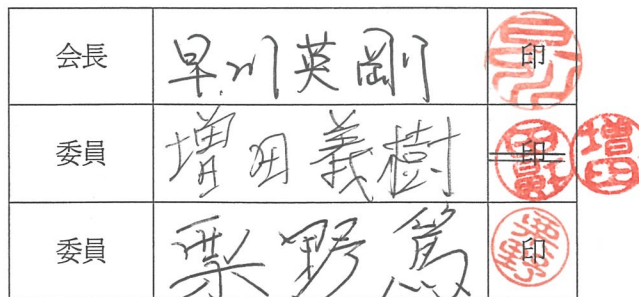 会長 早川英剛 印
委員 増田義樹 印 増田
委員 栗野篤 印